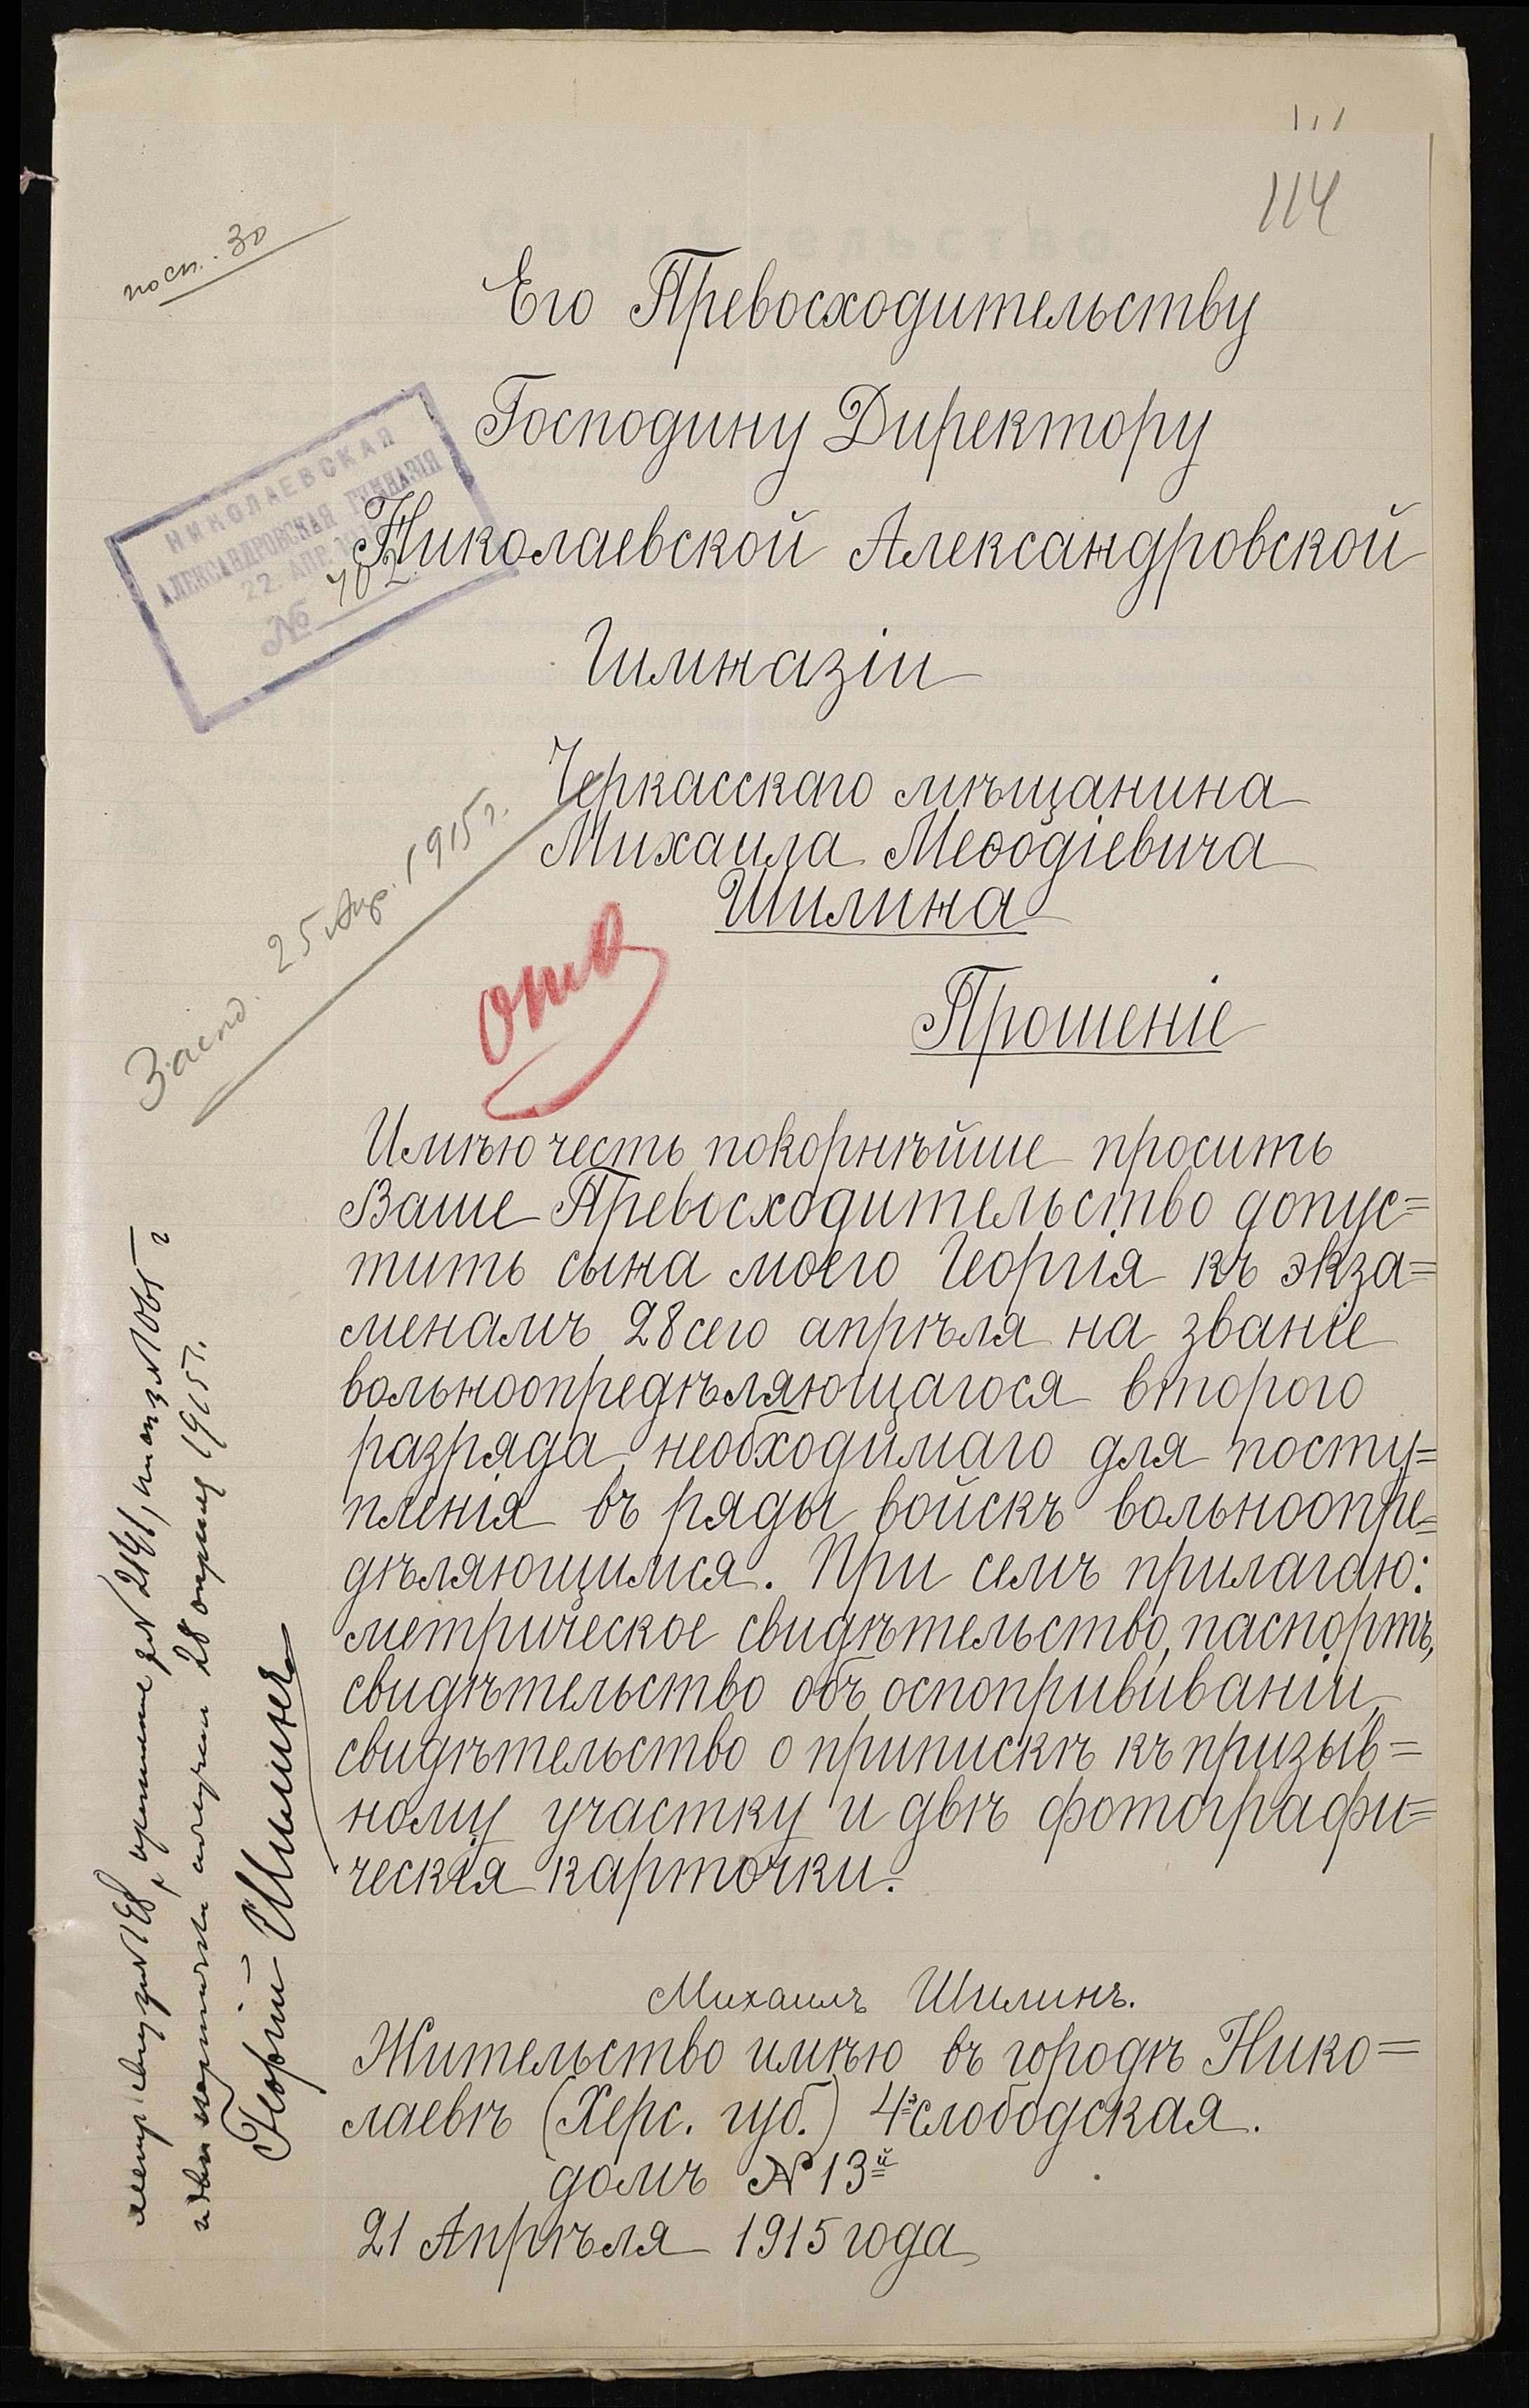 114
Его Превосходительству
Господину Директору
Николаевской Александровской
Гимназіи
НИКОЛАЕВСКАЯ
АЛЕКСАНДРОВСКАЯ ГИМНАЗІЯ
22. АПР.
№ 702
Черкасскаго мѣщанина
Михаила Меѳодіевича
Шилина
25 Апр. 1915 г.
Прошеніе
Имѣю честь покорнѣйше просить
Ваше Превосходительство допус=
тить сына моего Георгія къ экза=
менамъ 28 сего апрѣля на званіе
вольноопредѣляющагося второго
разряда, необходимаго для посту=
пленія въ ряды войскъ вольноопре=
дѣляющимся. При семъ прилагаю:
метрическое свидѣтельство, паспортъ,
свидѣтельство объ оспопрививаніи,
свидѣтельство о припискѣ къ призыв=
ному участку и двѣ фотографи=
ческія карточки.
Михаилъ Шилинъ.
Жительство имѣю въ городѣ Нико=
лаевѣ (Херс. губ.) 4-я Слободская.
домъ № 13й
21 Апрѣля 1915 года
28 1915 г.
Георгій Шилинъ